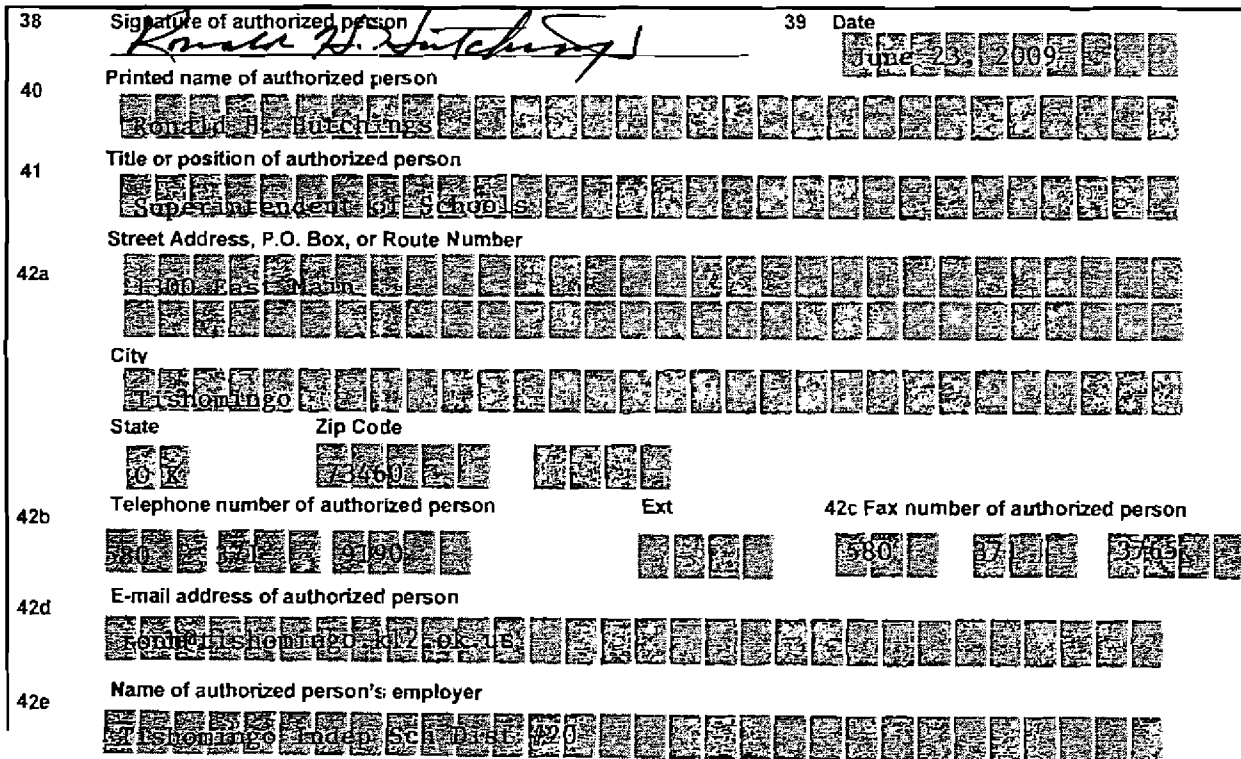 38 Signature of authorized person 39 Date
Ronald H. Hutchings June 23, 2009
40 Printed name of authorized person
Ronald H. Hutchings
41 Title or position of authorized person
Superintendent of Schools
Street Address, P.O. Box, or Route Number
42a 1300 East Main
City
Tishomingo
State Zip Code
OK 73460
42b Telephone number of authorized person Ext 42c Fax number of authorized person
580 371 9190 580 371 3765
42d E-mail address of authorized person
ronh@tishomingo.k12.ok.us
42e Name of authorized person's employer
Tishomingo Indep Sch Dist #20